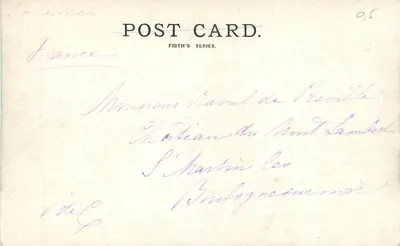 0,5
POST CARD.
FRITH'S SERIES.
France
Raoul de Preville
Château du Mont Lambert
St Martin les
Boulogne sur mer